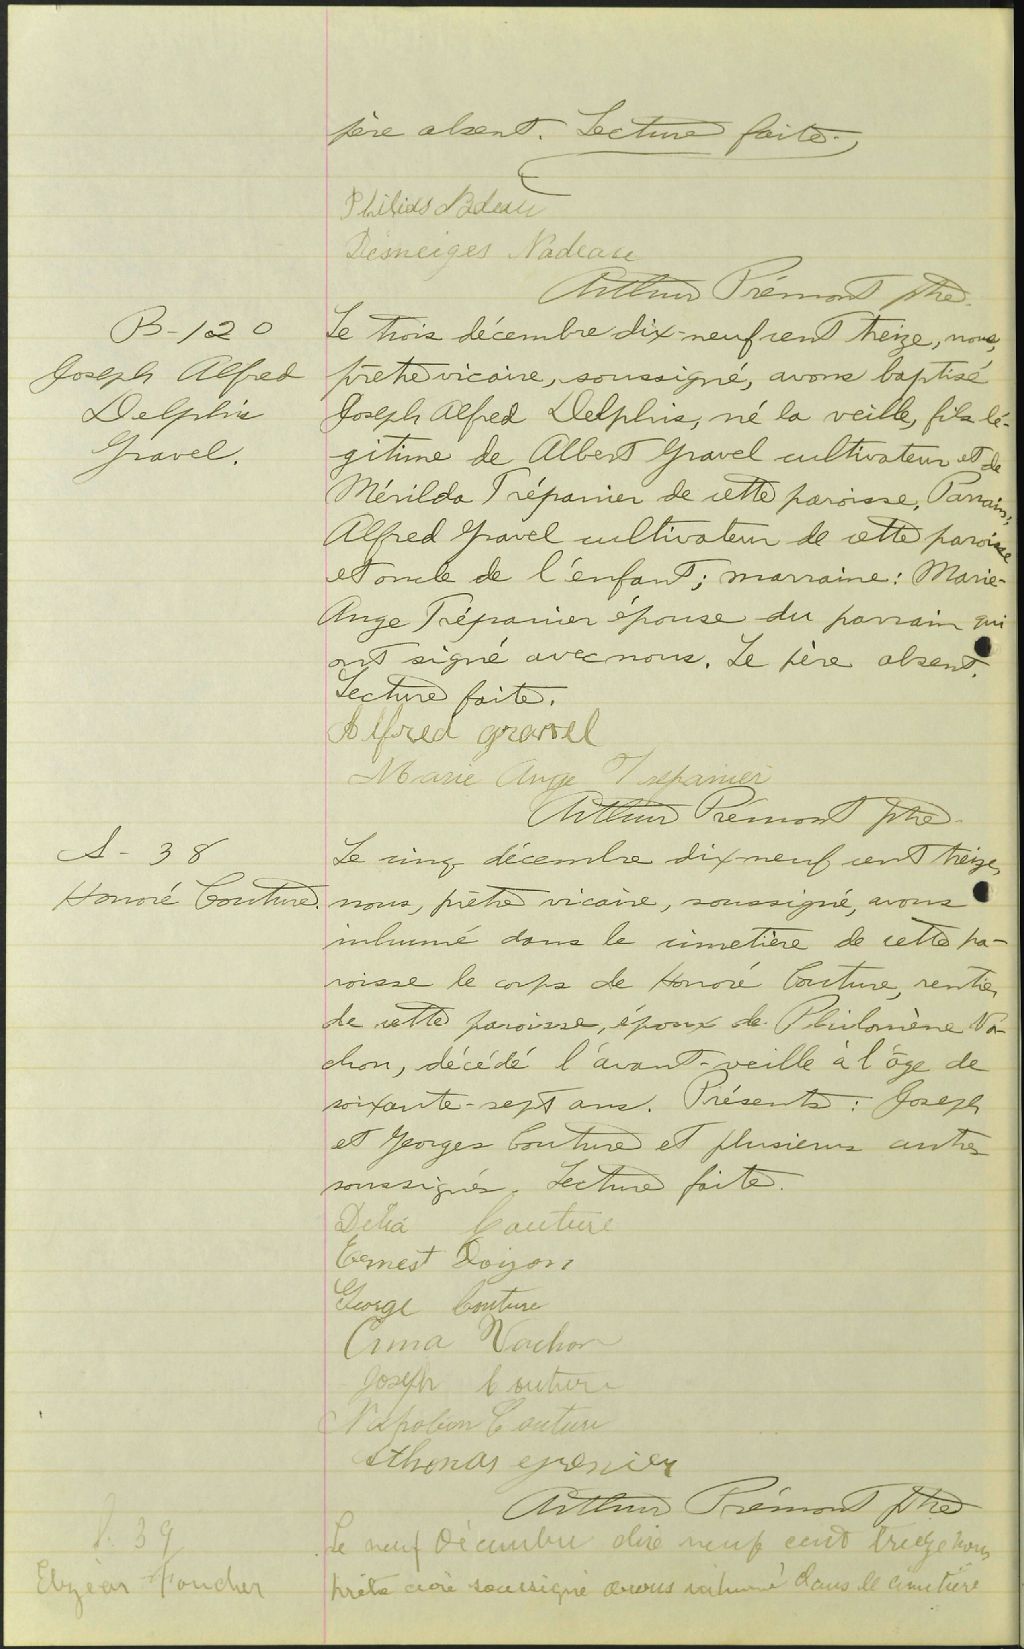 père absent. Lecture faite.
Philias Nadeau
Désneiges Nadeau
Arthur Prémont ptre.
B-120
Joseph Alfred
Delphis
Gravel.
Le trois décembre dix-neuf cent treize, nous,
prêtre vicaire, soussigné, avons baptisé
Joseph Alfred Delphis, né la veille, fils lé-
gitime de Albert Gravel cultivateur et de
Mérilda Trépanier de cette paroisse. Parrain:
Alfred Gravel cultivateur de cette paroisse
et oncle de l'enfant; marraine: Marie-
Ange Trépanier épouse du parrain qui
ont signé avec nous. Le père absent.
Lecture faite.
Alfred gravel
Marie Ange Trepanier
Arthur Prémont ptre.
S-38
Honoré Couture.
Le cinq décembre dix-neuf cent treize,
nous, prêtre vicaire, soussigné, avons
inhumé dans le cimetière de cette pa-
roisse le corps de Honoré Couture, rentier
de cette paroisse, époux de Philomène Va-
chon, décédé l'avant-veille à l'âge de
soixante-sept ans. Présents: Joseph
et Georges Couture et plusieurs autres
soussignés. Lecture faite.
Délia Couture
Ernest Doyon
George Couture
Anna Vachon
Joseph Couture
Napoléon Couture
Thomas grenier
Arthur Prémont ptre
S. 39
Elzéar Foucher
Le neuf Décembre dix neuf cent treize nous
prêtre curé soussigné avons inhumé dans le cimetière